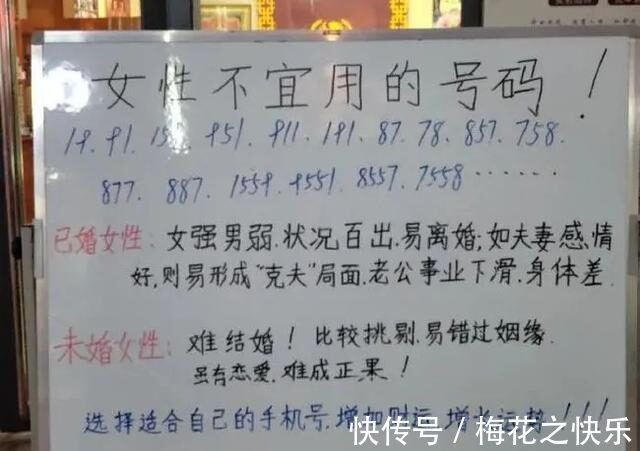 女性不宜用的号码！
19、91、159、951、911、191、87、78、857、758、
877、887、1559、9551、8557、7558……
已婚女性：女强男弱、状况百出、易离婚；如夫妻感情
好，则易形成“克夫”局面、老公事业下滑、身体差
未婚女性：难结婚！比较挑剔、易错过姻缘、
虽有恋爱、难成正果！
选择适合自己的手机号、增加财运、增长运势！！！
快传号／梅花之快乐